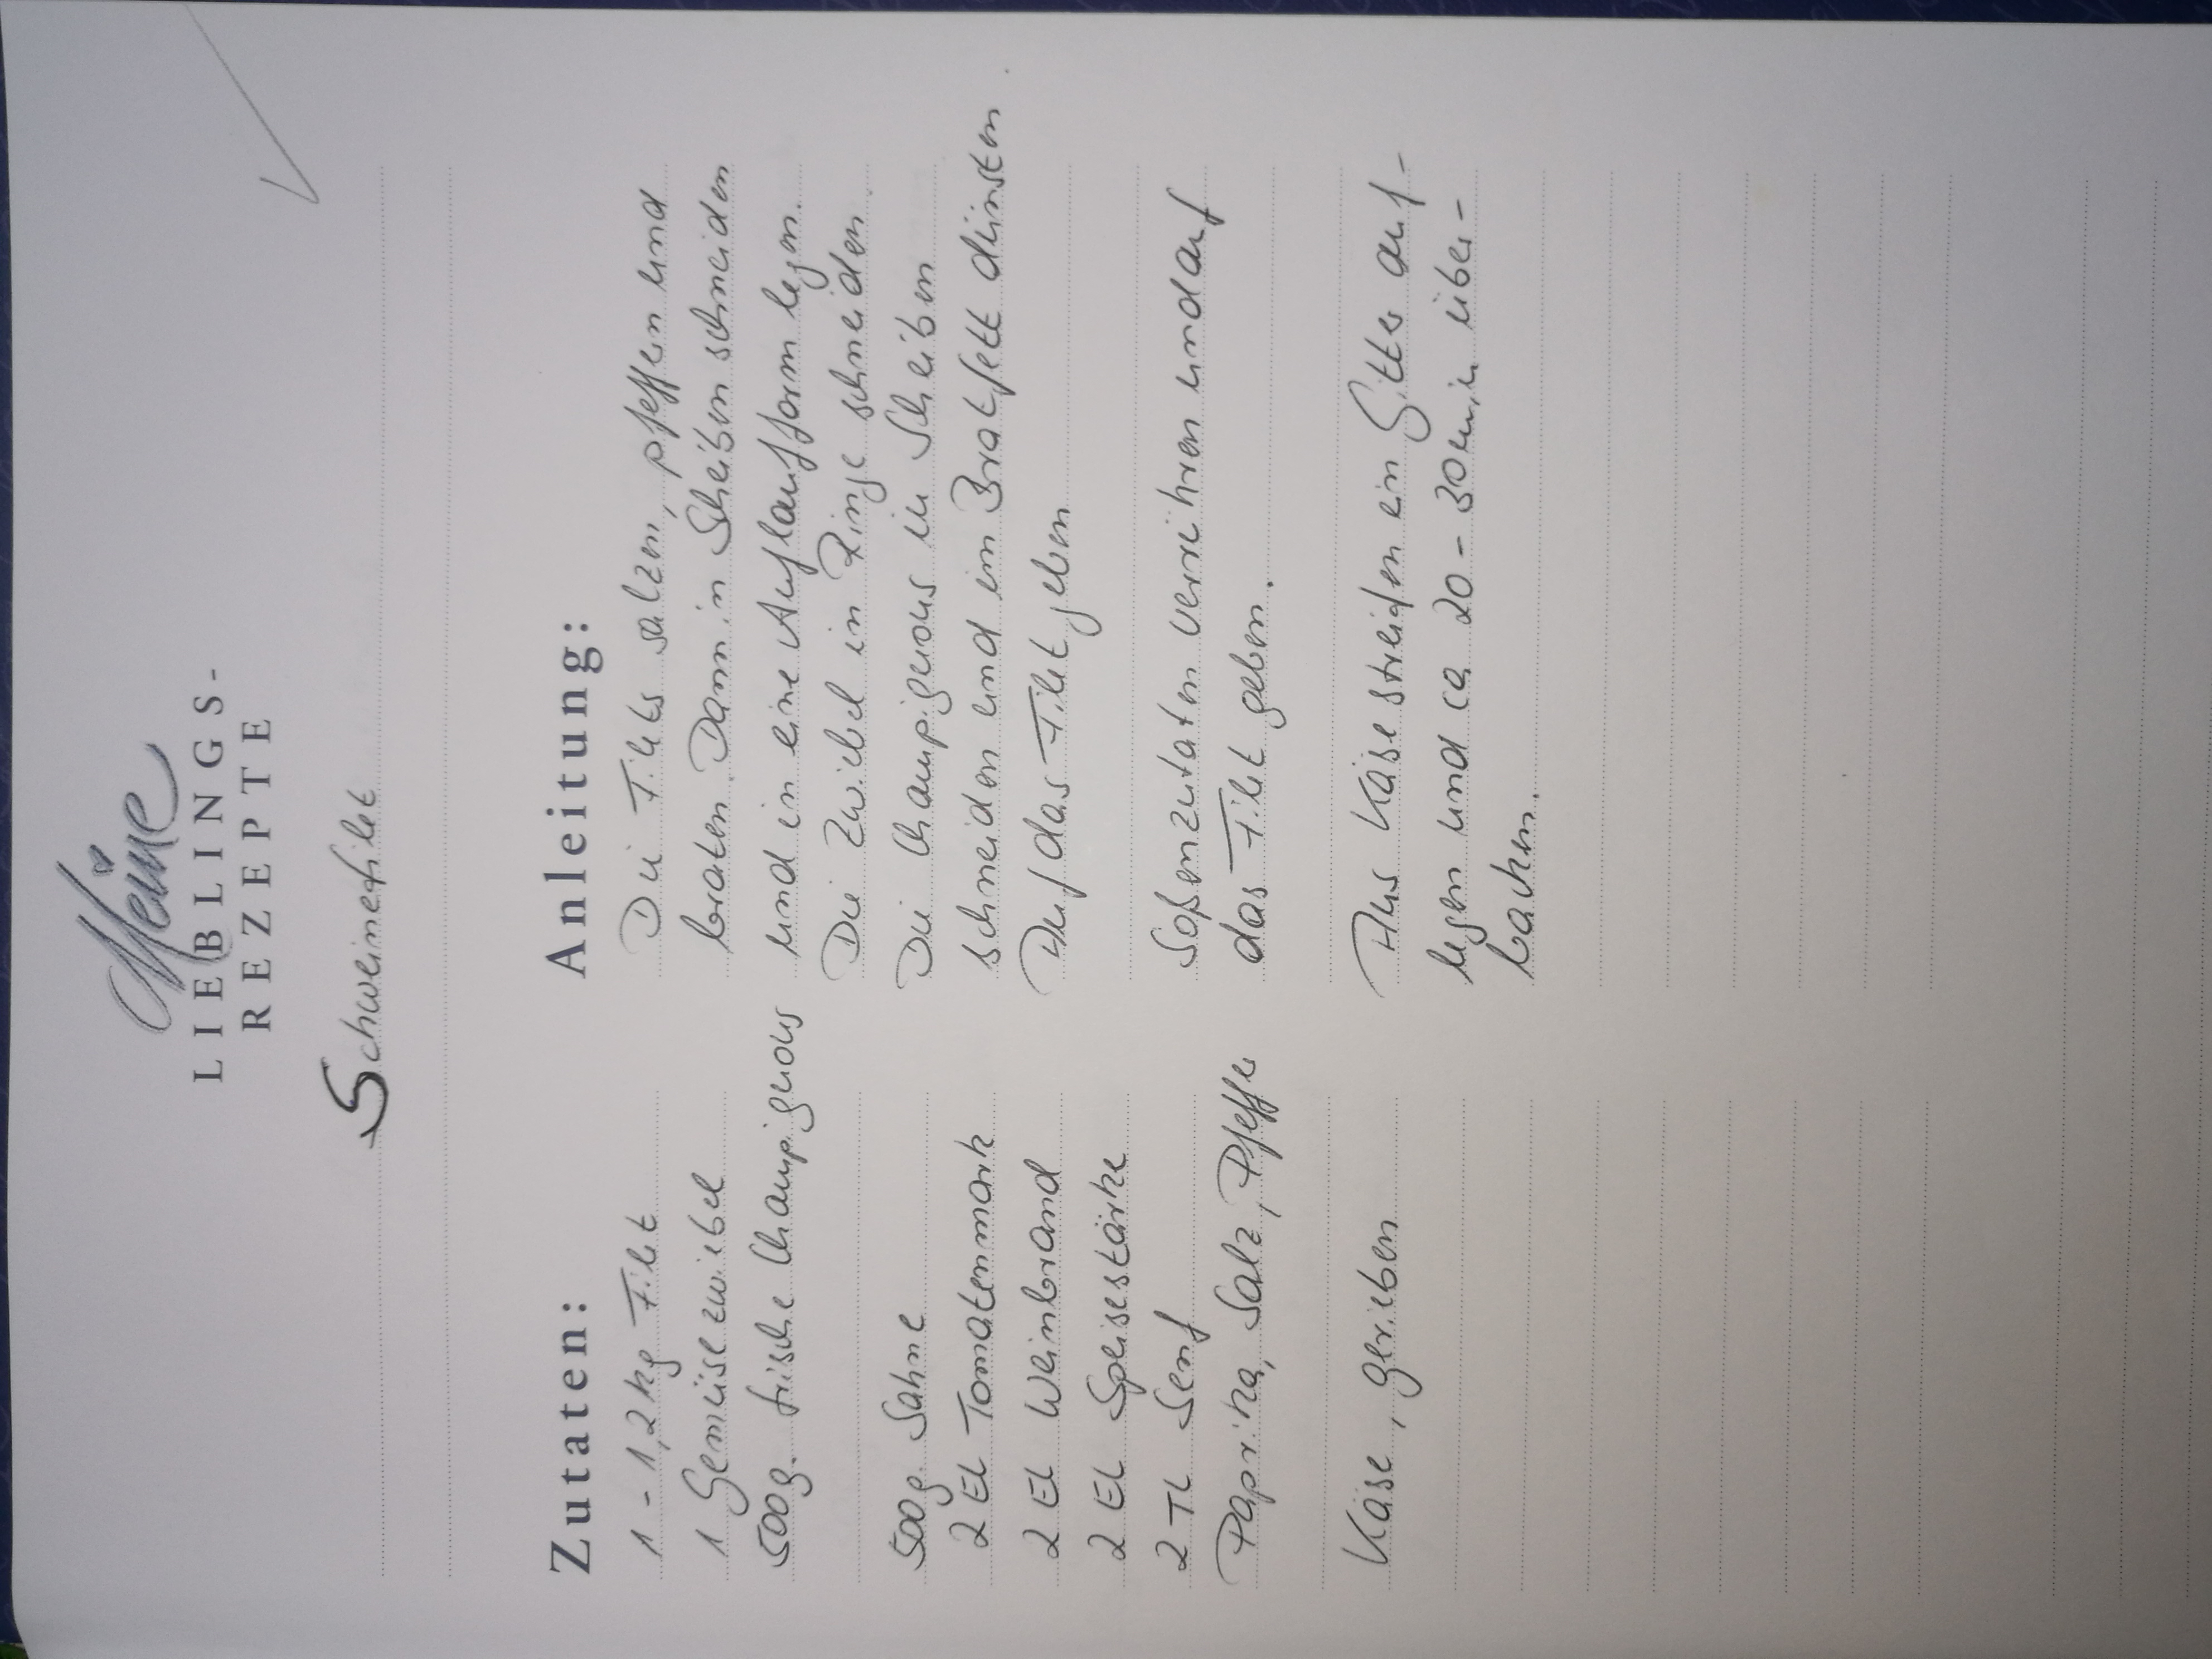 Meine
LIEBLINGS-
REZEPTE
Schweinefilet
Zutaten:
1 - 1,2 kg Filet
1 Gemüsezwiebel
500g. frische Champignons
500g. Sahne
2 EL Tomatenmark
2 EL Weinbrand
2 EL Speisestärke
2 TL Senf
Paprika, Salz, Pfeffer
Käse, gerieben
Anleitung:
Die Filets salzen, pfeffern und
braten. Dann in Scheiben schneiden
und in eine Auflaufform legen.
Die Zwiebel in Ringe schneiden.
Die Champignons in Scheiben
schneiden und im Bratfett dünsten.
Auf das Filet geben
Soßenzutaten verrühren und auf
das Filet geben.
Aus Käsestreifen ein Gitter auf-
legen und ca 20 - 30 min über-
backen.